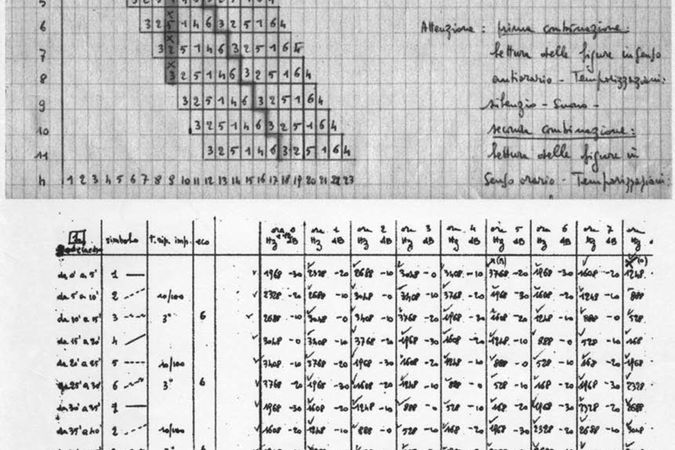 5
6 3 2 5 1 4 6 3 2 5 1 6 4
7 3 2 5 1 4 6 3 2 5 1 6 4
8 3 2 5 1 4 6 3 2 5 1 6 4
9 3 2 5 1 4 6 3 2 5 1 6 4
10 3 2 5 1 4 6 3 2 5 1 6 4
11 3 2 5 1 4 6 3 2 5 1 6 4
h 1 2 3 4 5 6 7 8 9 10 11 12 13 14 15 16 17 18 19 20 21 22 23
Attenzione : prima combinazione:
lettura delle figure in senso
antiorario - Temporizzazioni:
silenzio - Suono -
seconda combinazione:
lettura delle figure in
senso orario - Temporizzazioni:
simbolo t. rip. imp. eco ora 0 ora 1 ora 2 ora 3 ora 4 ora 5 ora 6 ora 7
Hz dB Hz dB Hz dB Hz dB Hz dB Hz dB Hz dB Hz dB Hz
da 0' a 5' 1 1968 -30 2328 -20 2688 -10 3048 -0 3408 -10 3768 -20 1968 -30 1608 -20 1248
da 5' a 10' 2 10/100 2328 -20 2688 -10 3048 -0 3408 -10 3768 -20 1968 -30 1608 -20 1248 -10 888
da 10' a 15' 3 3" 6 2688 -10 3048 -0 3408 -10 3768 -20 1968 -30 1608 -20 1248 -10 888 -0 528
da 15' a 20' 4 3048 -0 3408 -10 3768 -20 1968 -30 1608 -20 1248 -10 888 -0 528 -10 168
da 20' a 25' 5 10/100 3408 -10 3768 -20 1968 -30 1608 -20 1248 -10 888 -0 528 -10 168 -20 1968
da 25' a 30' 6 3" 6 3768 -20 1968 -30 1608 -20 1248 -10 888 -0 528 -10 168 -20 1968 -30 2328
da 30' a 35' 1 1968 -30 1608 -20 1248 -10 888 -0 528 -10 168 -20 1968 -30 2328 -20 2688
da 35' a 40' 2 10/100 1608 -20 1248 -10 888 -0 528 -10 168 -20 1968 -30 2328 -20 2688 -10 3048